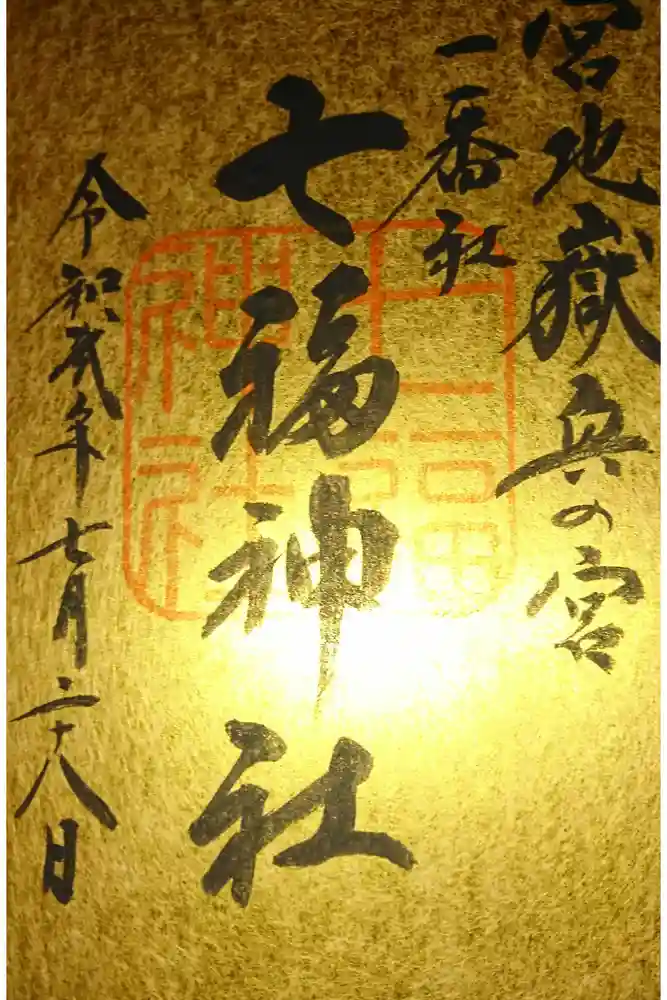 宮地嶽奥の宮
一番社
七福神社
七福神社
令和貳年七月二十八日